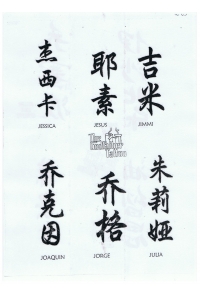 杰西卡
JESSICA
耶素
JESUS
吉米
JIMMI
The
Tattoo
乔克因
JOAQUIN
乔格
JORGE
朱莉娅
JULIA